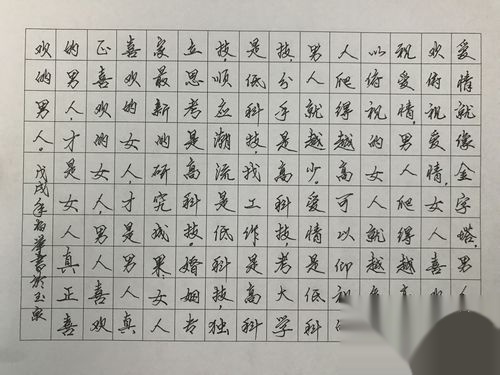 爱情就像金字塔,男人
欢俯视爱情,女人喜欢
视爱情,男人爬得越高
以俯视的女人就越
人爬得越高,可以仰视
男人就越少。爱情是低科
技,分手是高科技,考大学
是低科技,找工作是高科
技,顺应潮流是低科技,独
立思考是高科技。婚姻专
家最新的研究成果,女人
喜欢的女人,才是男人真
正喜欢的女人,男人喜欢
的男人,才是女人真正喜
欢的男人。
戊戌年书于玉泉